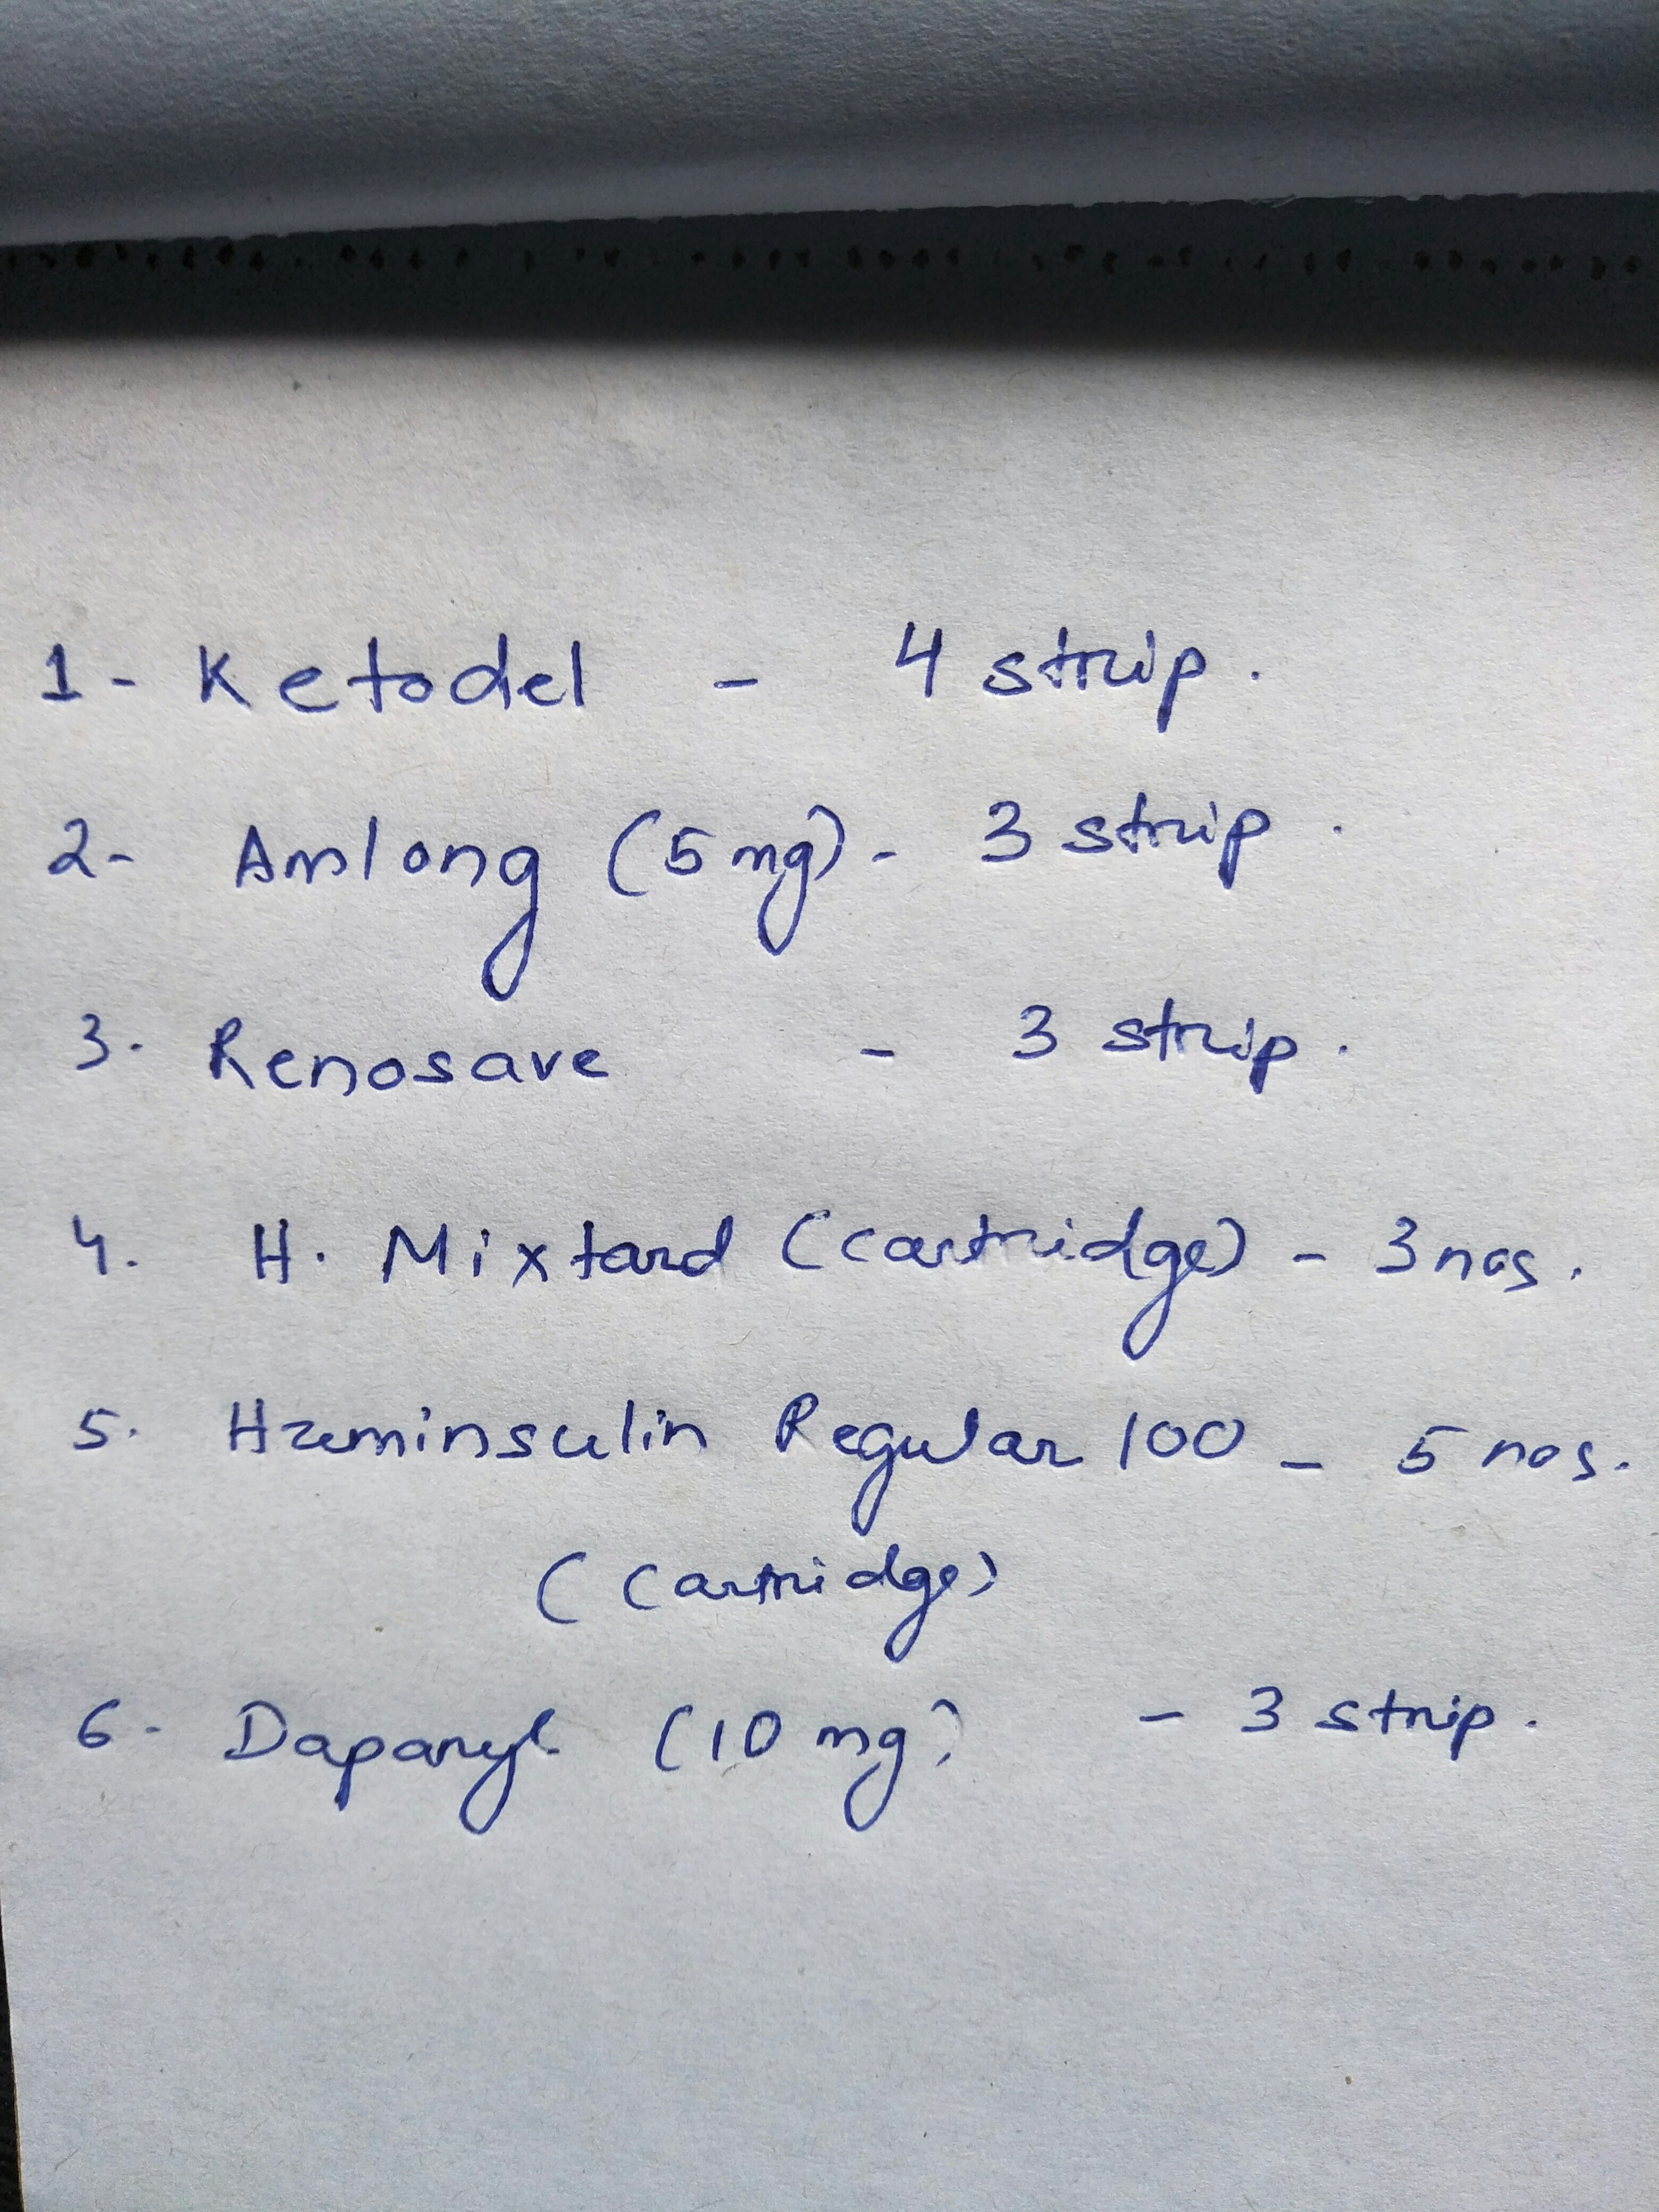 1- Ketodel - 4 strip.
2- Amlong (5 mg) - 3 strip.
3. Renosave - 3 strip.
4. H. Mixtard (cartridge) - 3 nos.
5. Huminsulin Regular 100 - 5 nos.
(Cartridge)
6- Daparyl (10 mg) - 3 strip.